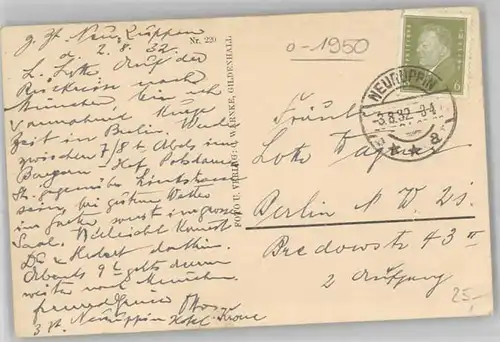 z. Zt. Neu-Ruppin
d. 2.8.32
L. Lotte Auf der
Rückreise nach
München, bin ich
vorraussichtl. kurze
Zeit in Berlin. Werde
zwischen 7/8 t Abds im
Bavaria-Hof Potsdamer
St. gegenüber Linkstrasse
sein bei gutem Wetter
im Garten sonst im grossen
Saal. Vielleicht kommst
Du & Hedwig dorthin.
Abends 9 t gehts dann
weiter nach München
Otto
z. Zt. Neuruppin Hotel Krone
Nr. 220
FOTO U. VERLAG: WARNKE, GILDENHALL.
0-1950
6
NEURUPPIN
3.8.32.
a
Fräul.
Lotte
Berlin N.W. 21.
Bredowstr 43 II
2 Aufgang
25,-